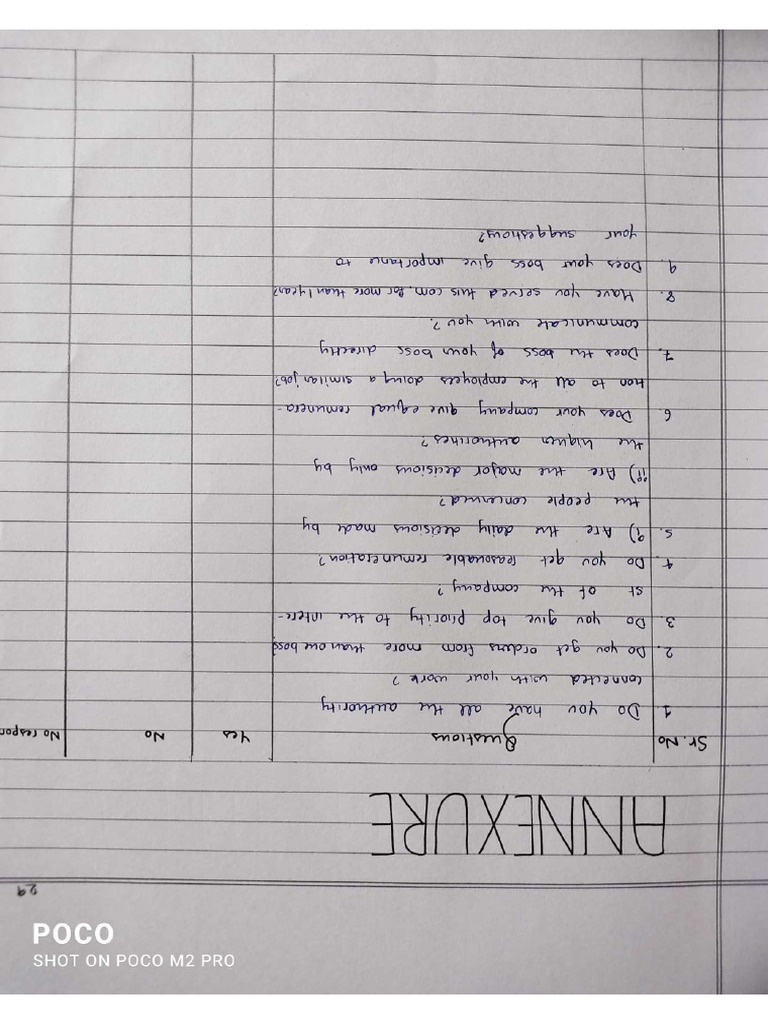 29
ANNEXURE
Sr. No Questions Yes No No respon
1. Do you have all the authority
connected with your work?
2. Do you get orders from more than one boss
3. Do you give top priority to the intere-
st of the company?
4. Do you get reasonable remuneration?
5. i) Are the daily decisions made by
the people concerned?
ii) Are the major decisions only by
the higher authorities?
6. Does your company give equal remunera-
tion to all the employees doing a similar job?
7. Does the boss of your boss directly
communicate with you?
8. Have you served this com. for more than 1 year?
9. Does your boss give importance to
your suggestions?
POCO
SHOT ON POCO M2 PRO